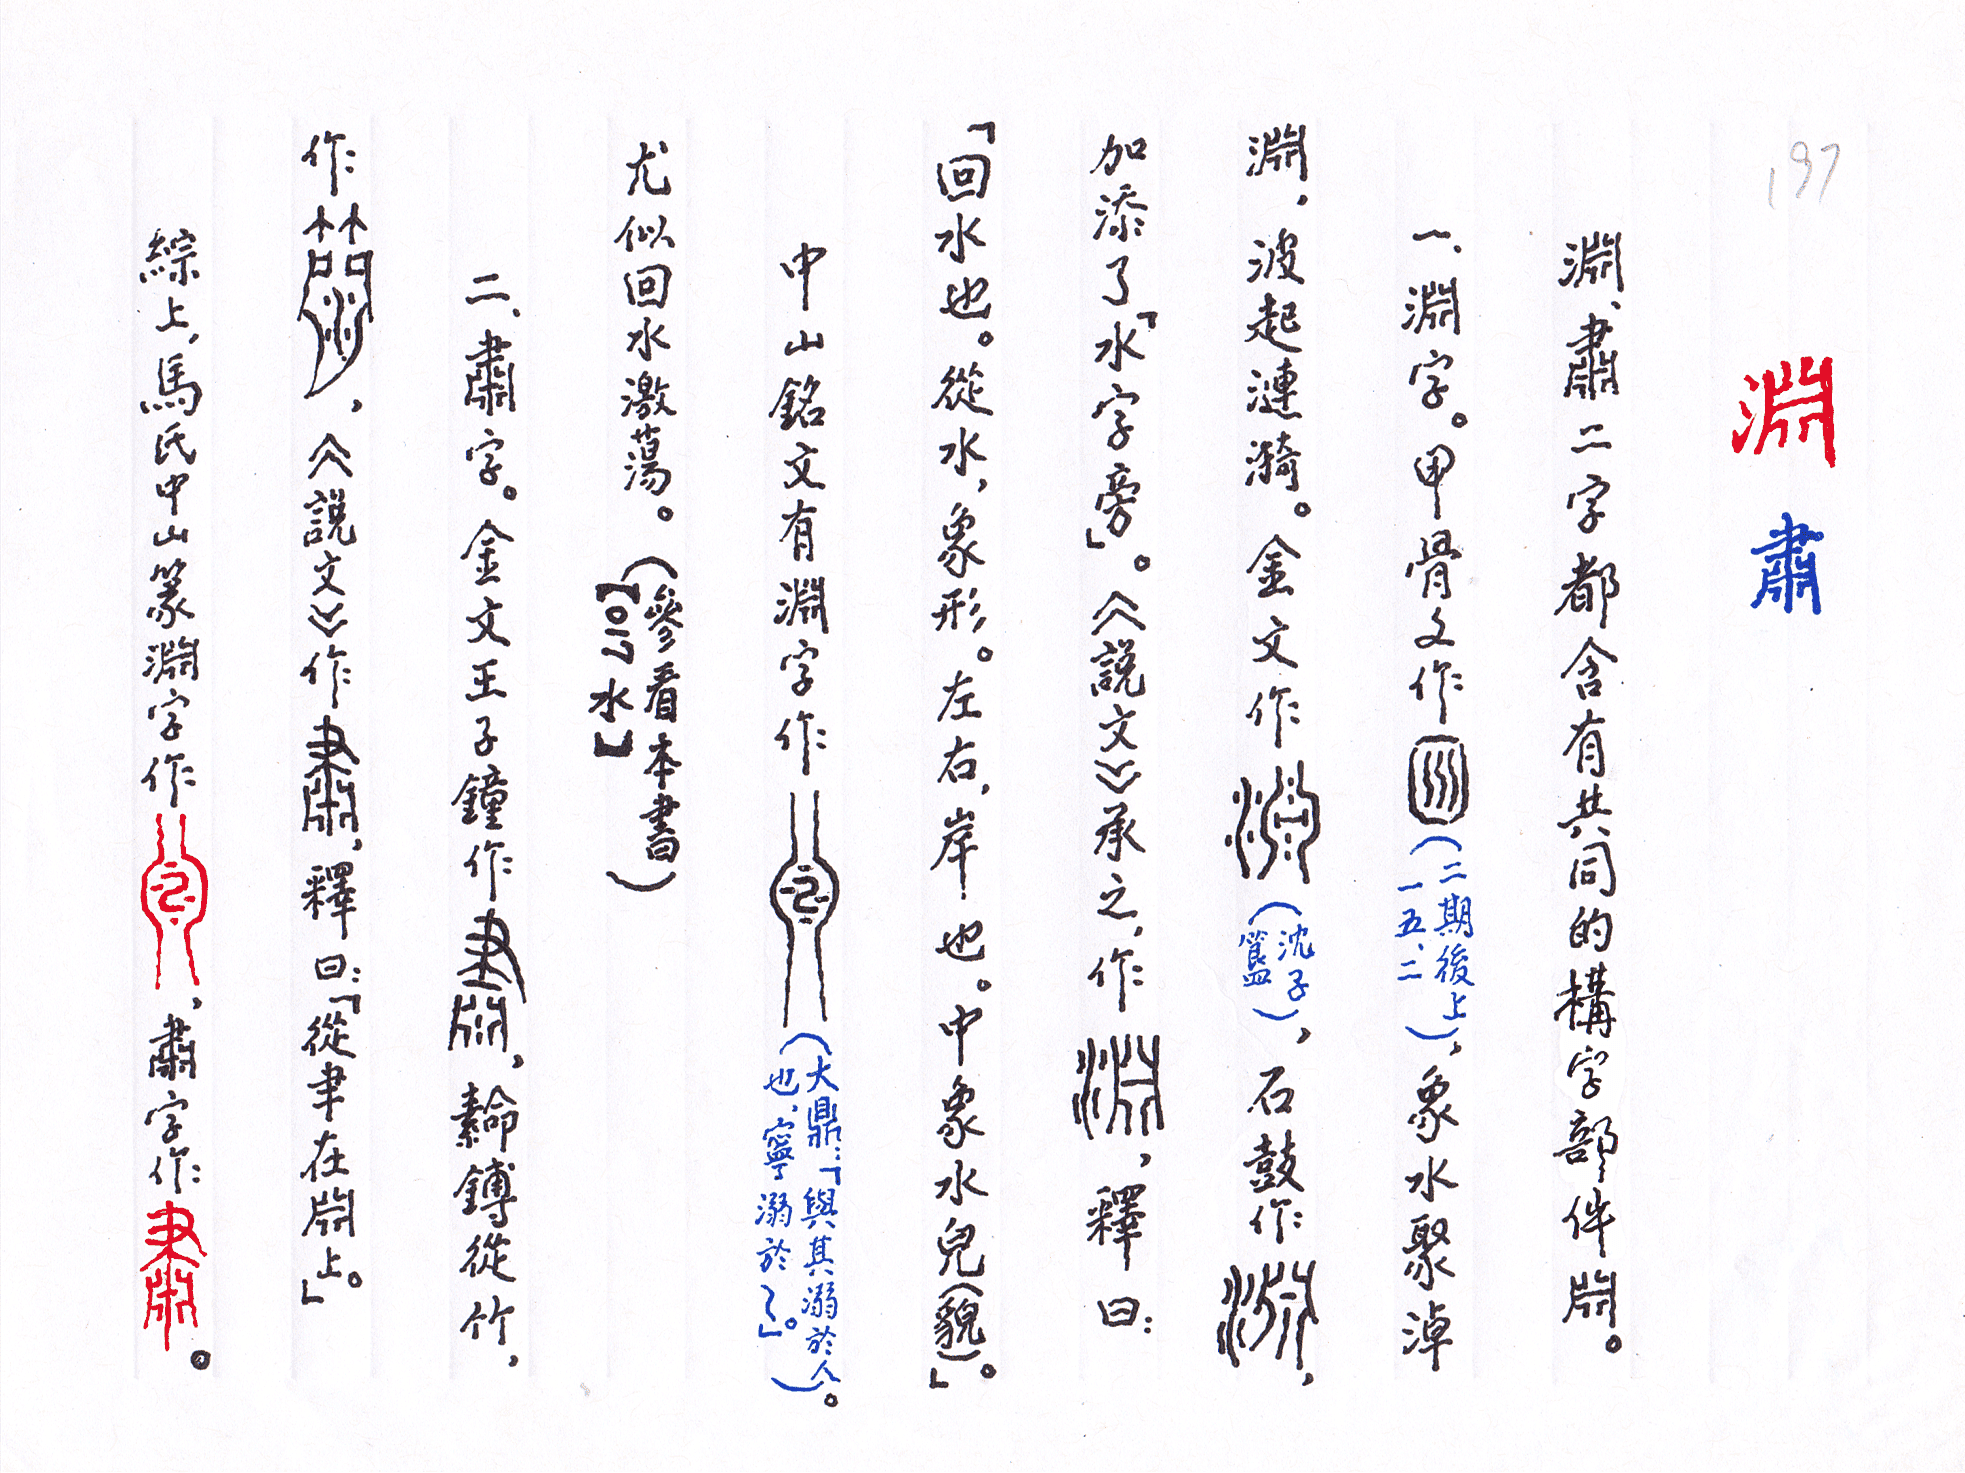 197
淵 肅
淵、肅二字都含有共同的構字部件𣶒。
一、淵字。甲骨文作（二期後上一五、二），象水聚淖
淵，波起漣漪。金文作（沈子簋），石鼓作，
加添了「水字旁」。《説文》承之，作，釋曰：
「回水也。從水，象形。左右，岸也。中象水皃（貌）。」
中山銘文有淵字作（大鼎：「與其溺於人也，寧溺於」。）。
尤似回水激蕩。（參看本書【〇一一水】）
二、肅字。金文王子鐘作，鎛從竹，
作，《説文》作，釋曰：「從聿在𣶒上。」
綜上，馬氏中山篆淵字作，肅字作。